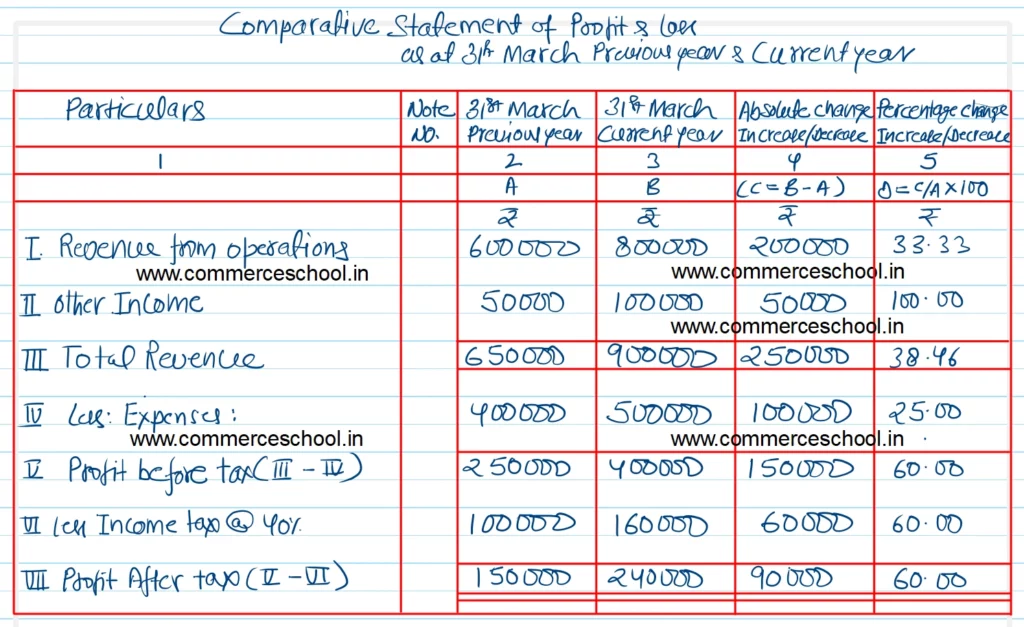 Comparative Statement of Profit & Loss
as at 31st March Previous year & Current year
Particulars Note No. 31st March Previous year 31st March Current year Absolute change Increase/Decrease Percentage change Increase/Decrease
1 2 3 4 5
A B (C=B-A) D=C/A×100
₹ ₹ ₹ ₹
I. Revenue from operations 600000 800000 200000 33.33
www.commerceschool.in www.commerceschool.in
II other Income 50000 100000 50000 100.00
www.commerceschool.in
III Total Revenue 650000 900000 250000 38.46
IV Less: Expenses: 400000 500000 100000 25.00
www.commerceschool.in www.commerceschool.in
V Profit before tax (III - IV) 250000 400000 150000 60.00
VI less Income tax @ 40% 100000 160000 60000 60.00
VII Profit After tax (V - VI) 150000 240000 90000 60.00